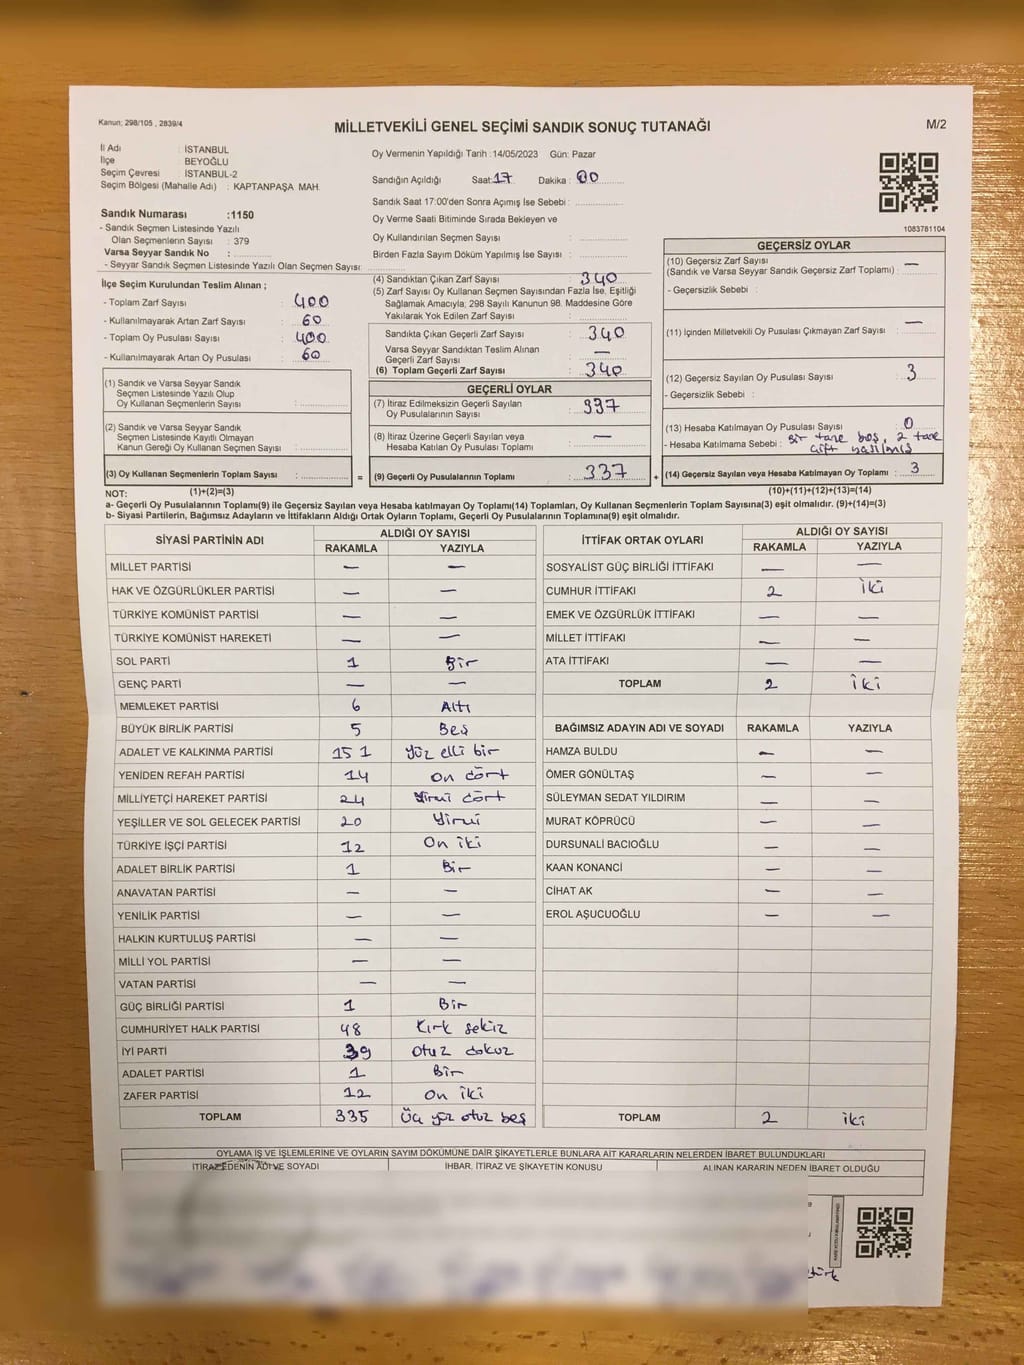 Kanun; 298/105 , 2839/4
MİLLETVEKİLİ GENEL SEÇİMİ SANDIK SONUÇ TUTANAĞI
M/2
İl Adı : İSTANBUL
İlçe : BEYOĞLU
Seçim Çevresi : İSTANBUL-2
Seçim Bölgesi (Mahalle Adı) : KAPTANPAŞA MAH.
Sandık Numarası :1150
- Sandık Seçmen Listesinde Yazılı
Olan Seçmenlerin Sayısı : 379
Varsa Seyyar Sandık No :
- Seyyar Sandık Seçmen Listesinde Yazılı Olan Seçmen Sayısı:
İlçe Seçim Kurulundan Teslim Alınan ;
- Toplam Zarf Sayısı : 400
- Kullanılmayarak Artan Zarf Sayısı : 60
- Toplam Oy Pusulası Sayısı : 400
- Kullanılmayarak Artan Oy Pusulası : 60
(1) Sandık ve Varsa Seyyar Sandık
Seçmen Listesinde Yazılı Olup
Oy Kullanan Seçmenlerin Sayısı :
(2) Sandık ve Varsa Seyyar Sandık
Seçmen Listesinde Kayıtlı Olmayan
Kanun Gereği Oy Kullanan Seçmen Sayısı :
(3) Oy Kullanan Seçmenlerin Toplam Sayısı : =
Oy Vermenin Yapıldığı Tarih : 14/05/2023 Gün: Pazar
Sandığın Açıldığı Saat: 17 Dakika : 00
Sandık Saat 17:00'den Sonra Açımış İse Sebebi :
Oy Verme Saati Bitiminde Sırada Bekleyen ve
Oy Kullandırılan Seçmen Sayısı :
Birden Fazla Sayım Döküm Yapılmış İse Sayısı :
(4) Sandıktan Çıkan Zarf Sayısı : 340
(5) Zarf Sayısı Oy Kullanan Seçmen Sayısından Fazla İse, Eşitliği
Sağlamak Amacıyla; 298 Sayılı Kanunun 98. Maddesine Göre
Yakılarak Yok Edilen Zarf Sayısı :
Sandıkta Çıkan Geçerli Zarf Sayısı : 340
Varsa Seyyar Sandıktan Teslim Alınan
Geçerli Zarf Sayısı : —
(6) Toplam Geçerli Zarf Sayısı : 340
GEÇERLİ OYLAR
(7) İtiraz Edilmeksizin Geçerli Sayılan
Oy Pusulalarının Sayısı : 337
(8) İtiraz Üzerine Geçerli Sayılan veya
Hesaba Katılan Oy Pusulaların Toplamı : —
(9) Geçerli Oy Pusulalarının Toplamı : 337 +
1083781104
GEÇERSİZ OYLAR
(10) Geçersiz Zarf Sayısı
(Sandık ve Varsa Seyyar Sandık Geçersiz Zarf Toplamı) : —
- Geçersizlik Sebebi :
(11) İçinden Milletvekili Oy Pusulası Çıkmayan Zarf Sayısı : —
(12) Geçersiz Sayılan Oy Pusulası Sayısı : 3
- Geçersizlik Sebebi :
(13) Hesaba Katılmayan Oy Pusulası Sayısı : 0
- Hesaba Katılmama Sebebi : Bir tane boş, 2 tane
çift yazılmış
(14) Geçersiz Sayılan veya Hesaba Katılmayan Oy Toplamı : 3
NOT: (1)+(2)=(3) (10)+(11)+(12)+(13)=(14)
a- Geçerli Oy Pusulalarının Toplamı(9) ile Geçersiz Sayılan veya Hesaba katılmayan Oy Toplamı(14) Toplamları, Oy Kullanan Seçmenlerin Toplam Sayısına(3) eşit olmalıdır. (9)+(14)=(3)
b- Siyasi Partilerin, Bağımsız Adayların ve İttifakların Aldığı Ortak Oyların Toplamı, Geçerli Oy Pusulalarının Toplamına(9) eşit olmalıdır.
SİYASİ PARTİNİN ADI ALDIĞI OY SAYISI
RAKAMLA YAZIYLA
MİLLET PARTİSİ — —
HAK VE ÖZGÜRLÜKLER PARTİSİ — —
TÜRKİYE KOMÜNİST PARTİSİ — —
TÜRKİYE KOMÜNİST HAREKETİ — —
SOL PARTİ 1 Bir
GENÇ PARTİ — —
MEMLEKET PARTİSİ 6 Altı
BÜYÜK BİRLİK PARTİSİ 5 Beş
ADALET VE KALKINMA PARTİSİ 151 Yüz elli bir
YENİDEN REFAH PARTİSİ 14 On dört
MİLLİYETÇİ HAREKET PARTİSİ 24 Yirmi dört
YEŞİLLER VE SOL GELECEK PARTİSİ 20 Yirmi
TÜRKİYE İŞÇİ PARTİSİ 12 On iki
ADALET BİRLİK PARTİSİ 1 Bir
ANAVATAN PARTİSİ — —
YENİLİK PARTİSİ — —
HALKIN KURTULUŞ PARTİSİ — —
MİLLİ YOL PARTİSİ — —
VATAN PARTİSİ — —
GÜÇ BİRLİĞİ PARTİSİ 1 Bir
CUMHURİYET HALK PARTİSİ 48 Kırk sekiz
İYİ PARTİ 39 otuz dokuz
ADALET PARTİSİ 1 Bir
ZAFER PARTİSİ 12 On iki
TOPLAM 335 Üç yüz otuz beş
İTTİFAK ORTAK OYLARI ALDIĞI OY SAYISI
RAKAMLA YAZIYLA
SOSYALİST GÜÇ BİRLİĞİ İTTİFAKI — —
CUMHUR İTTİFAKI 2 İki
EMEK VE ÖZGÜRLÜK İTTİFAKI — —
MİLLET İTTİFAKI — —
ATA İTTİFAKI — —
TOPLAM 2 İki
BAĞIMSIZ ADAYIN ADI VE SOYADI RAKAMLA YAZIYLA
HAMZA BULDU — —
ÖMER GÖNÜLTAŞ — —
SÜLEYMAN SEDAT YILDIRIM — —
MURAT KÖPRÜCÜ — —
DURSUNALİ BACIOĞLU — —
KAAN KONANCİ — —
CİHAT AK — —
EROL AŞUCUOĞLU — —
TOPLAM 2 iki
OYLAMA İŞ VE İŞLEMLERİNE VE OYLARIN SAYIM DÖKÜMÜNE DAİR ŞİKAYETLERLE BUNLARA AİT KARARLARIN NELERDEN İBARET BULUNDUKLARI
İTİRAZ EDENİN ADI VE SOYADI İHBAR, İTİRAZ VE ŞİKAYETİN KONUSU ALINAN KARARIN NEDEN İBARET OLDUĞU